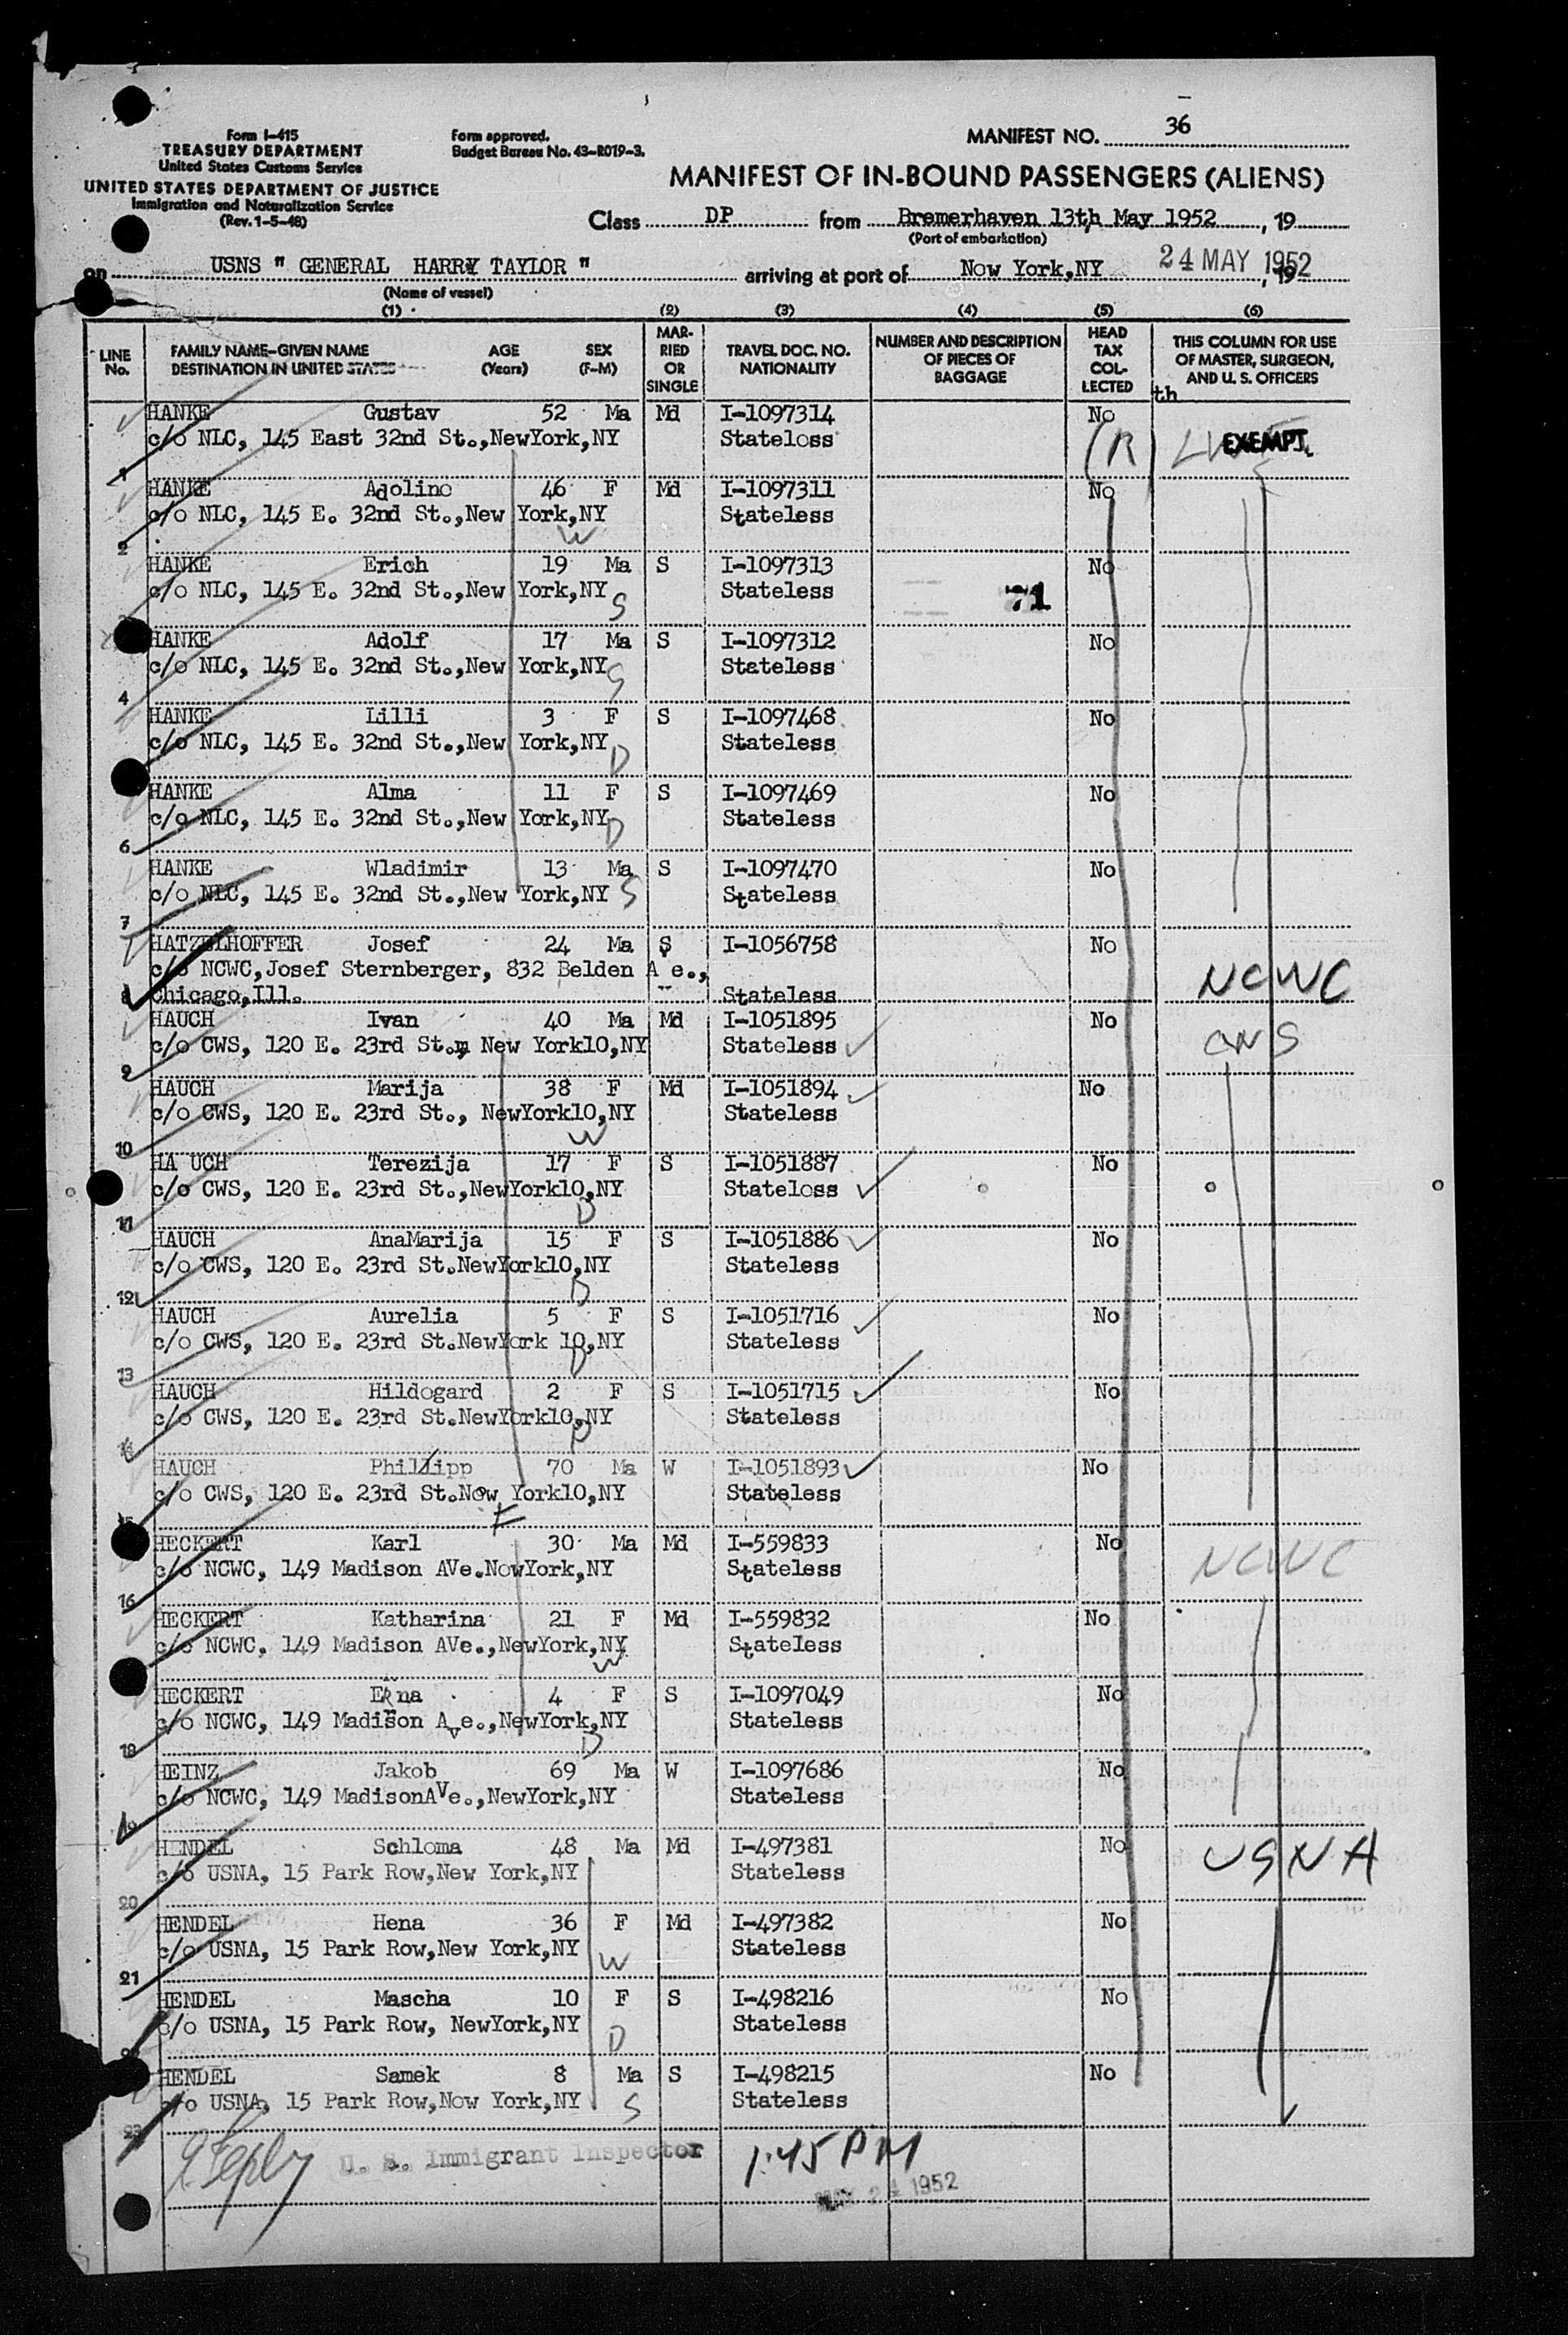 Form I-415
TREASURY DEPARTMENT
United States Customs Service
UNITED STATES DEPARTMENT OF JUSTICE
Immigration and Naturalization Service
(Rev. 1-5-48)
Form approved.
Budget Bureau No. 43-R019-3.
MANIFEST NO. 36
MANIFEST OF IN-BOUND PASSENGERS (ALIENS)
Class DP from Bremerhaven 13th May 1952, 19
(Port of embarkation)
on USNS " GENERAL HARRY TAYLOR " arriving at port of New York,NY 24 MAY 1952, 19
(Name of vessel)
(1) (2) (3) (4) (5) (6)
LINE No.
FAMILY NAME-GIVEN NAME AGE SEX
DESTINATION IN UNITED STATES (Years) (F-M)
MARRIED OR SINGLE
TRAVEL DOC. NO. NATIONALITY
NUMBER AND DESCRIPTION OF PIECES OF BAGGAGE
HEAD TAX COLLECTED
THIS COLUMN FOR USE OF MASTER, SURGEON, AND U. S. OFFICERS
th
HANKE Gustav 52 Ma Md I-1097314 No
c/o NLC, 145 East 32nd St.,NewYork,NY Stateless (R) EXEMPT.
1
HANKE Adoline 46 F Md I-1097311 No
c/o NLC, 145 E. 32nd St.,New York,NY Stateless
2 W
HANKE Erich 19 Ma S I-1097313 No
c/o NLC, 145 E. 32nd St.,New York,NY S Stateless 71
HANKE Adolf 17 Ma S I-1097312 No
c/o NLC, 145 E. 32nd St.,New York,NY S Stateless
4
HANKE Lilli 3 F S I-1097468 No
c/o NLC, 145 E. 32nd St.,New York,NY D Stateless
HANKE Alma 11 F S I-1097469 No
c/o NLC, 145 E. 32nd St.,New York,NY D Stateless
6
HANKE Wladimir 13 Ma S I-1097470 No
c/o NLC, 145 E. 32nd St.,New York,NY S Stateless
7
HATZELHOFFER Josef 24 Ma S I-1056758 No
c/o NCWC,Josef Sternberger, 832 Belden A e., NCWC
8 Chicago,Ill. Stateless
HAUCH Ivan 40 Ma Md I-1051895 No
c/o CWS, 120 E. 23rd St.m New York10,NY Stateless CWS
9
HAUCH Marija 38 F Md I-1051894 No
c/o CWS, 120 E. 23rd St., NewYork10,NY Stateless
10 W
HA UCH Terezija 17 F S I-1051887 No
c/o CWS, 120 E. 23rd St.,NewYork10,NY Stateless
11 D
HAUCH AnaMarija 15 F S I-1051886 No
c/o CWS, 120 E. 23rd St.NewYork10,NY Stateless
12 D
HAUCH Aurelia 5 F S I-1051716 No
c/o CWS, 120 E. 23rd St.NewYork 10,NY Stateless
13 D
HAUCH Hildogard 2 F S I-1051715 No
c/o CWS, 120 E. 23rd St.NewYork10,NY Stateless
D
HAUCH Phillipp 70 Ma W I-1051893 No
c/o CWS, 120 E. 23rd St.New York10,NY Stateless
15 F
HECKERT Karl 30 Ma Md I-559833 No
c/o NCWC, 149 Madison AVe.NewYork,NY Stateless NCWC
16
HECKERT Katharina 21 F Md I-559832 No
c/o NCWC, 149 Madison AVe.,NewYork,NY Stateless
W
HECKERT Erna 4 F S I-1097049 No
c/o NCWC, 149 Madison Ave.,NewYork,NY Stateless
18 D
HEINZ Jakob 69 Ma W I-1097686 No
c/o NCWC, 149 MadisonAVe.,NewYork,NY Stateless
19
HENDEL Schloma 48 Ma Md I-497381 No USNA
c/o USNA, 15 Park Row,New York,NY Stateless
20
HENDEL Hena 36 F Md I-497382 No
c/o USNA, 15 Park Row,New York,NY W Stateless
21
HENDEL Mascha 10 F S I-498216 No
c/o USNA, 15 Park Row, NewYork,NY D Stateless
HENDEL Samek 8 Ma S I-498215 No
c/o USNA, 15 Park Row,New York,NY S Stateless
23
U. S. Immigrant Inspector 1:45 PM
MAY 24 1952